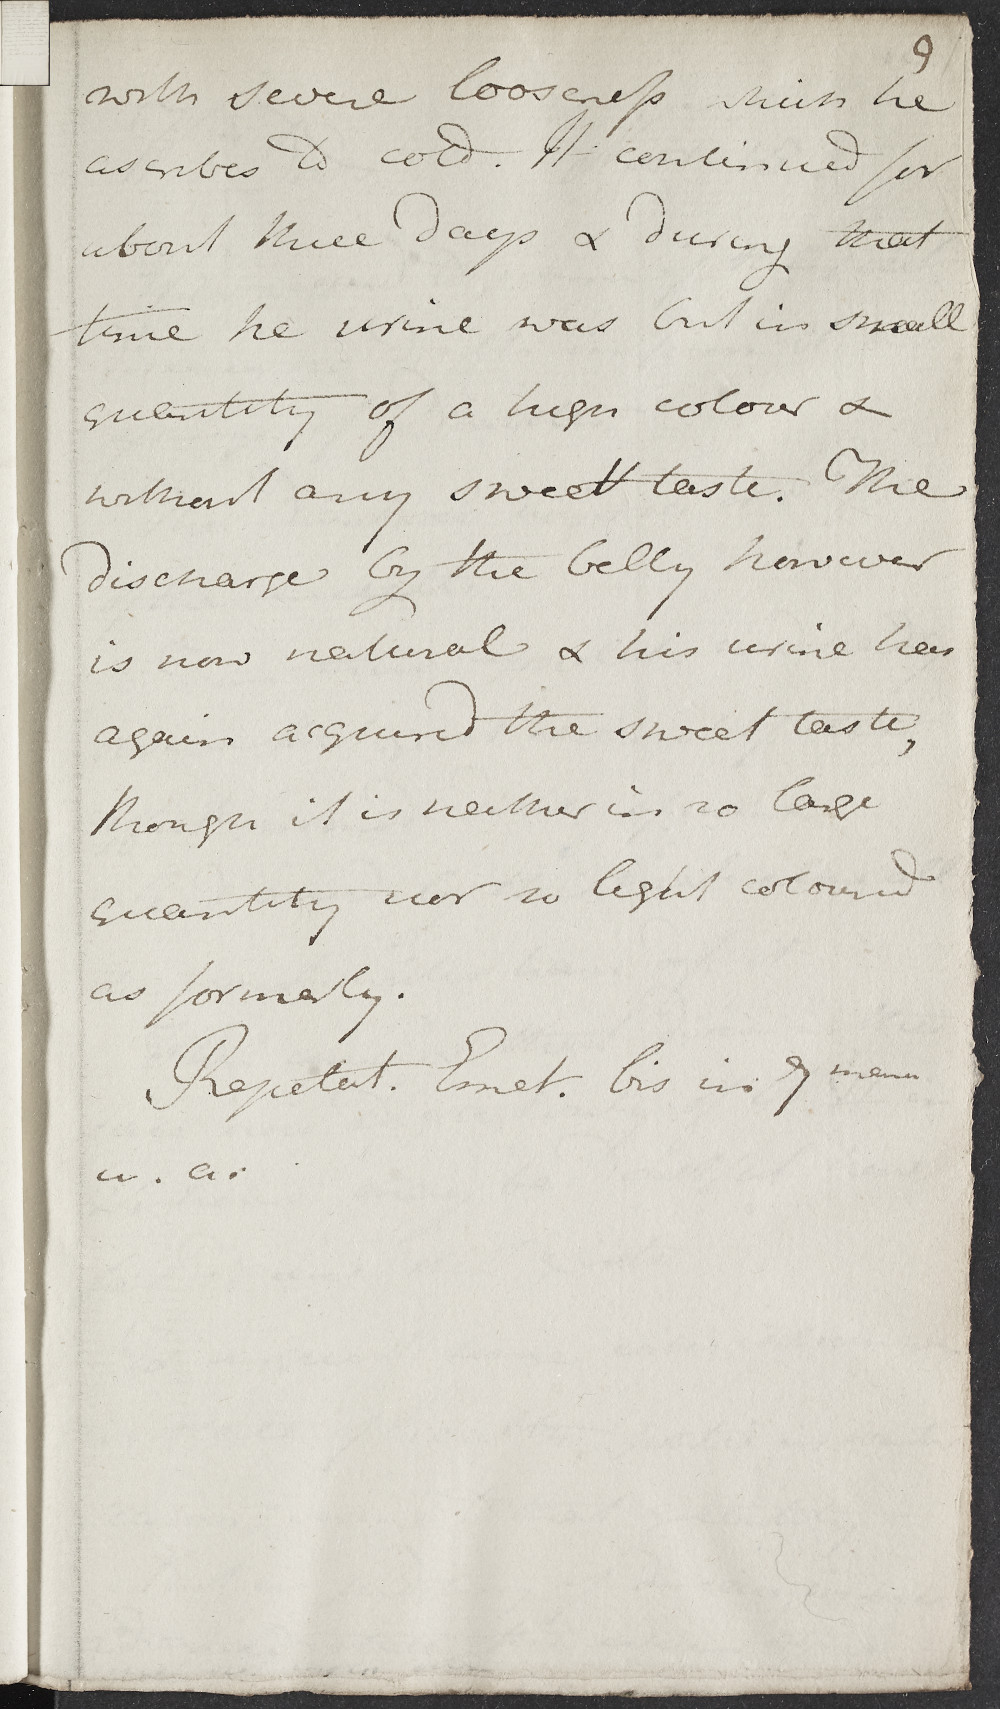 9
with severe looseness which he
ascribes to cold. It continued for
about three days & during that
time he urine was but in small
quantity of a high colour &
without any sweet taste. The
discharge by the belly however
is now natural & his urine has
again acquired the sweet taste,
though it is neither in so large
quantity nor so light coloured
as formerly.
Repetat. Emet. bis in
u. a.